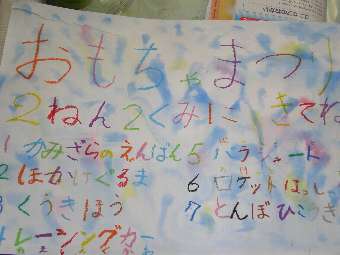 おもちゃまつり
2ねん2くみに きてね
1 かみざらのえんばん
2 ほかけぐるま
3 くうきほう
4 レーシングカー
5 パラシュート
6 ロケットはっしゃ
7 とんぼひこうき